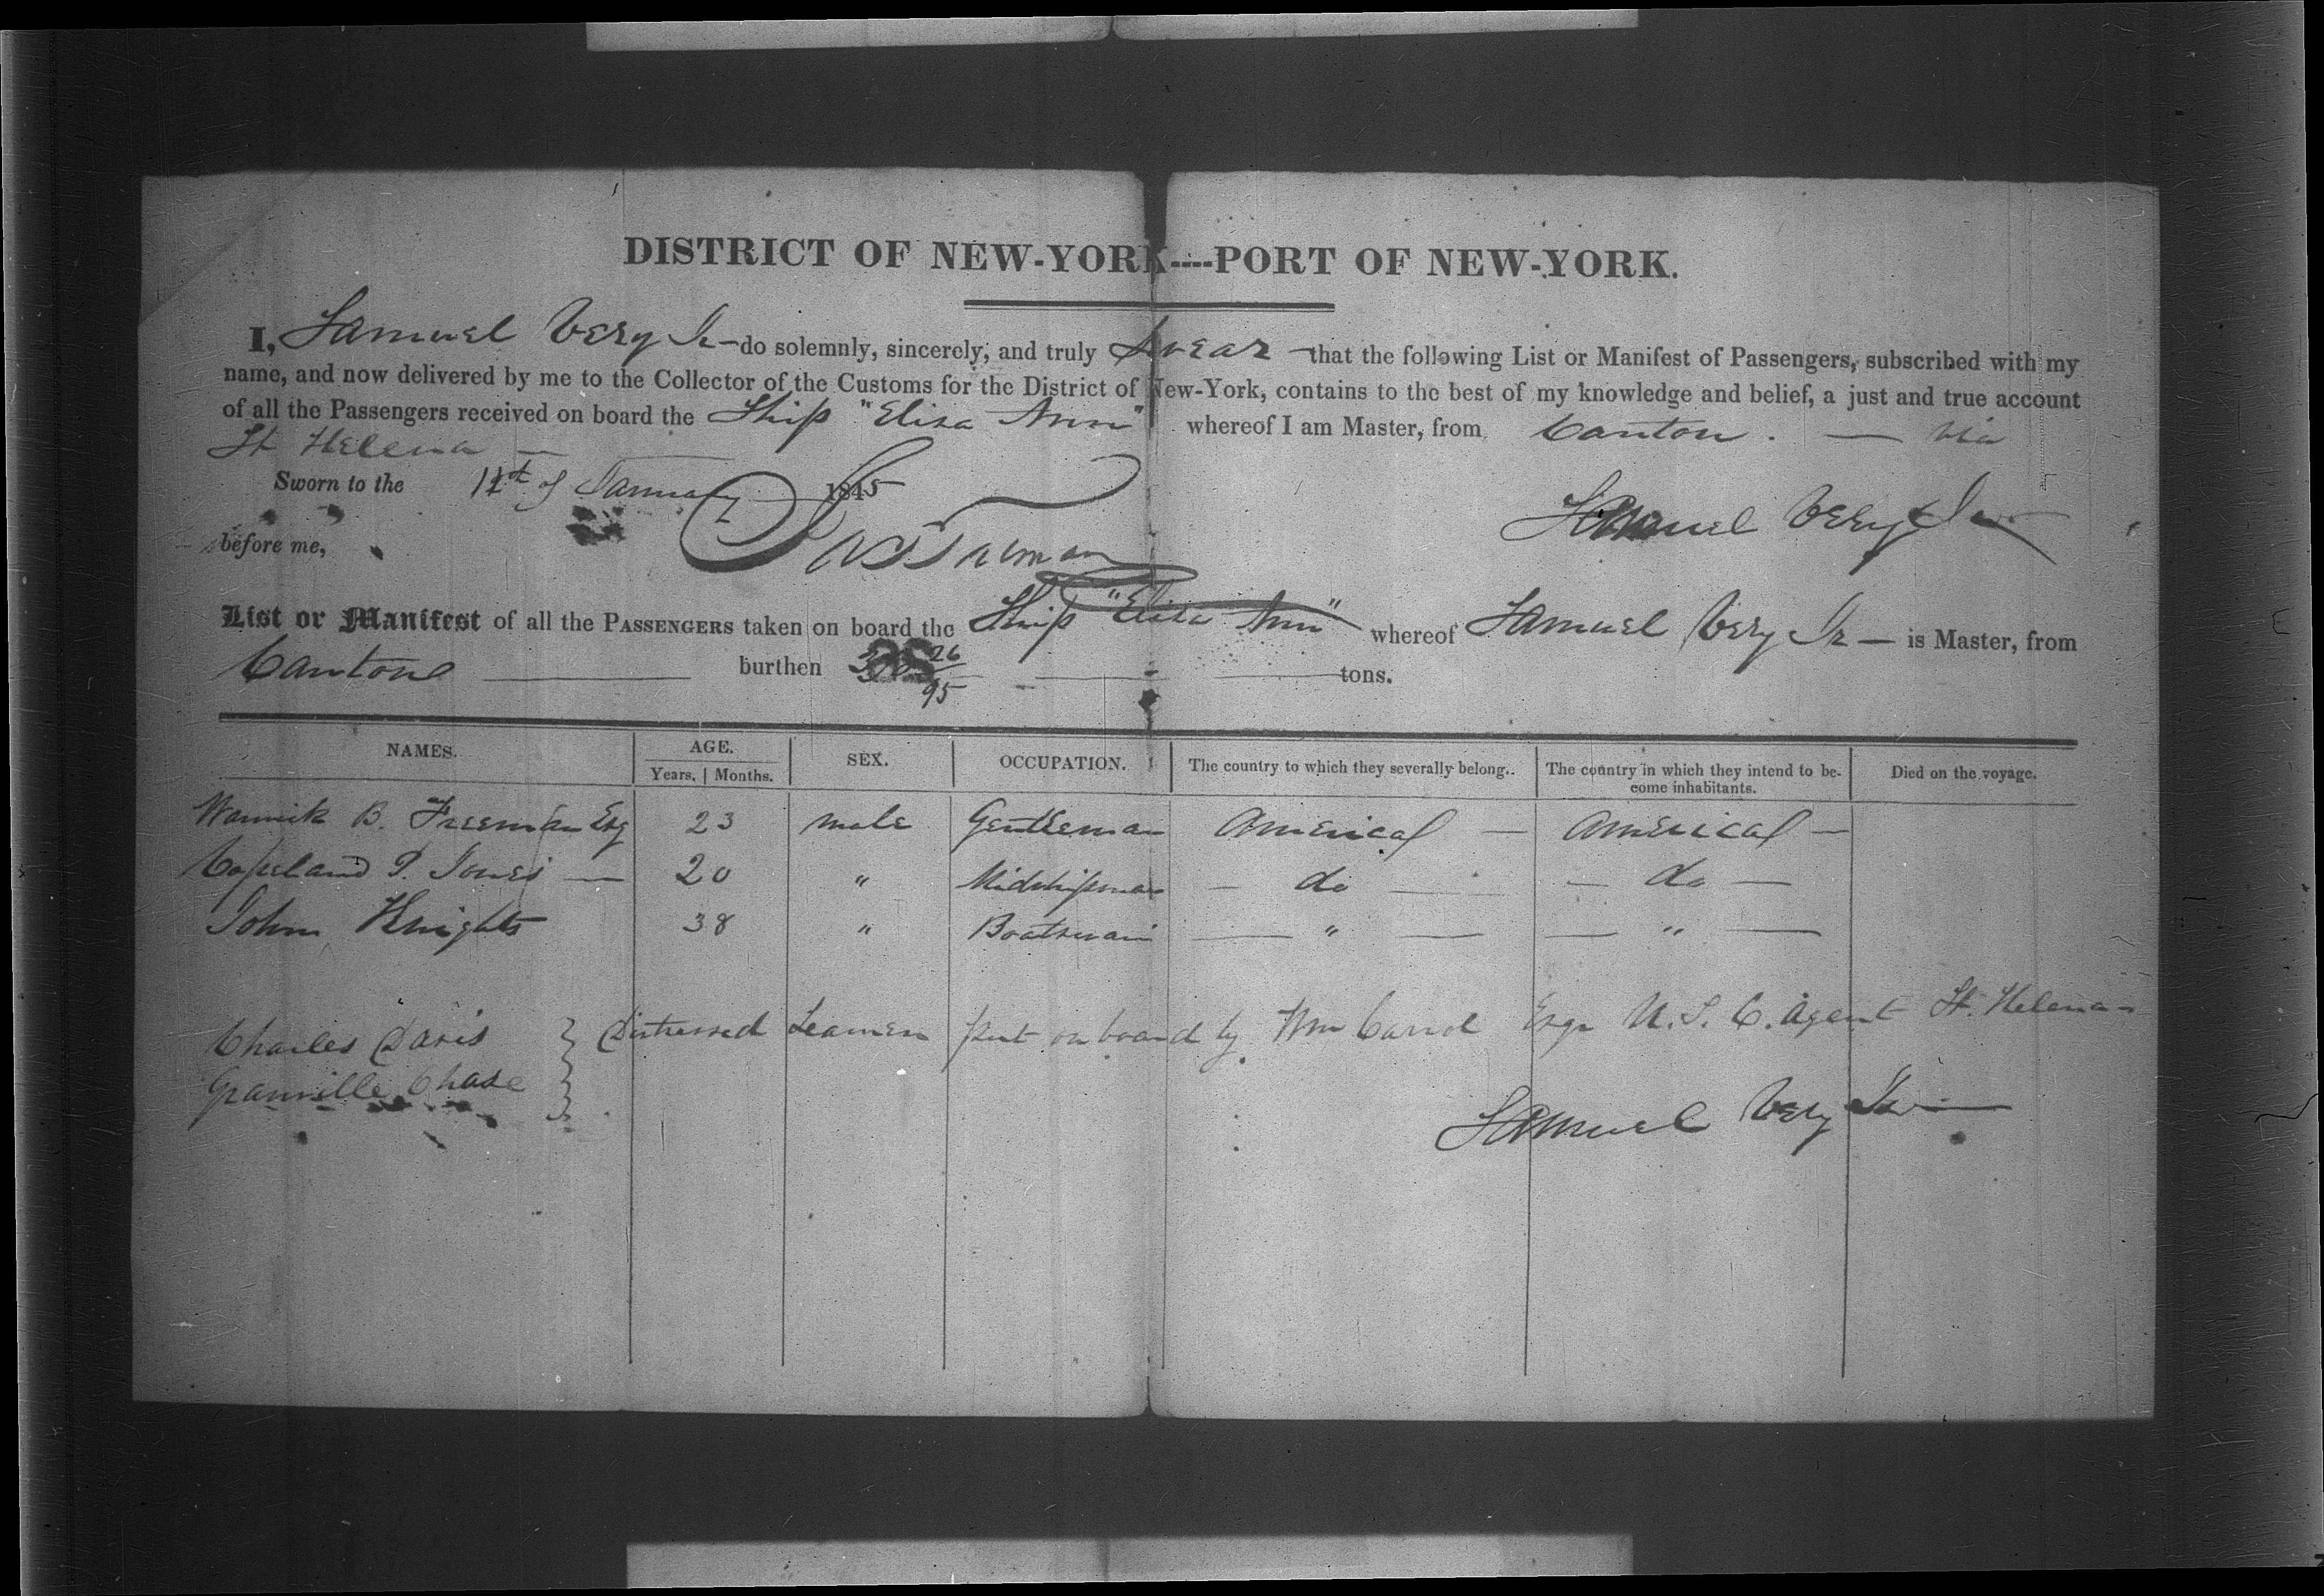 DISTRICT OF NEW-YORK----PORT OF NEW-YORK.
I, Samuel Very Jr — do solemnly, sincerely, and truly Swear — that the following List or Manifest of Passengers, subscribed with my
name, and now delivered by me to the Collector of the Customs for the District of New-York, contains to the best of my knowledge and belief, a just and true account
of all the Passengers received on board the Ship "Eliza Ann" whereof I am Master, from Canton. — via
St Helena —
Sworn to the of January 1845
before me,
Samuel Very Jr
List or Manifest of all the PASSENGERS taken on board the Ship "Eliza Ann" whereof Samuel Very Jr — is Master, from
Canton burthen 26/95 tons.
NAMES. AGE. SEX. OCCUPATION. The country to which they severally belong. The country in which they intend to be-
Years. Months. come inhabitants. Died on the voyage.
B. Freeman Esq 23 male Gentleman America — America —
Copeland P. Jones — 20 " Midshipman — do — — do —
John Knights 38 " Boatswain — " — — " —
Charles Davis } Distressed Seamen put on board by Wm Carrol Esqr U.S.C. Agent St. Helena -
Granville Chase }
Samuel Very Jr